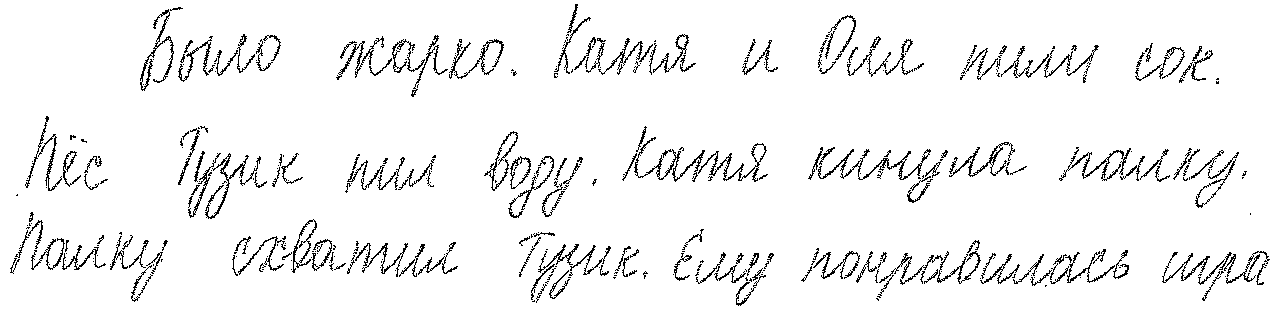 Было жарко. Катя и Оля пили сок.
Пёс Тузик пил воду. Катя кинула палку.
Палку схватил Тузик. Ему понравилась игра